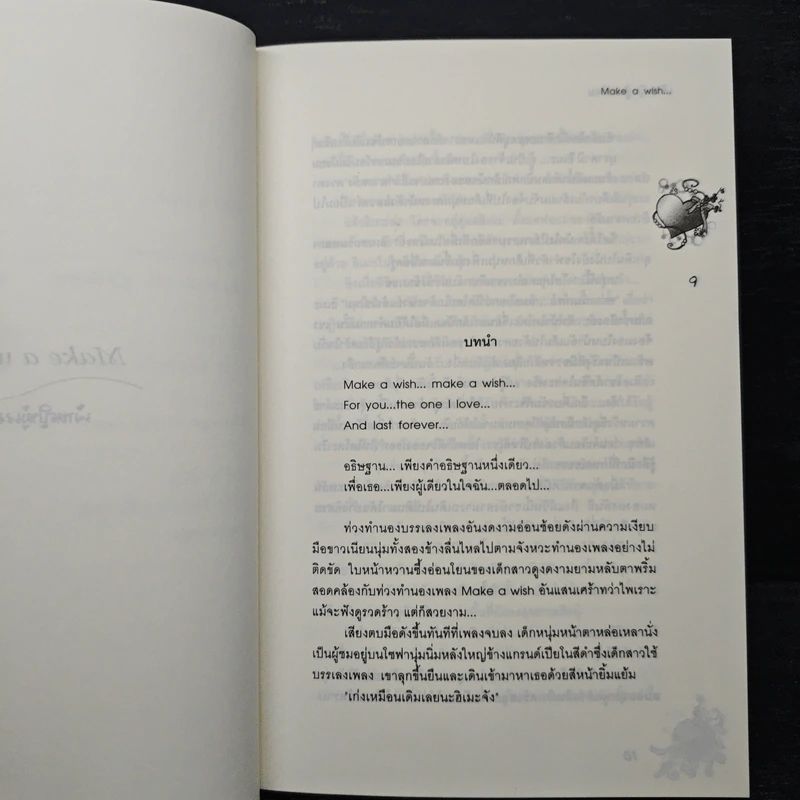 Make a wish...
9
บทนำ
Make a wish... make a wish...
For you...the one I love...
And last forever...
อธิษฐาน... เพียงคำอธิษฐานหนึ่งเดียว...
เพื่อเธอ...เพียงผู้เดียวในใจฉัน...ตลอดไป...
ท่วงทำนองบรรเลงเพลงอันงดงามอ่อนช้อยดังผ่านความเงียบ
มือขาวเนียนนุ่มทั้งสองข้างลื่นไหลไปตามจังหวะทำนองเพลงอย่างไม่
ติดขัด ใบหน้าหวานซึ้งอ่อนโยนของเด็กสาวดูงดงามยามหลับตาพริ้ม
สอดคล้องกับท่วงทำนองเพลง Make a wish อันแสนเศร้าทว่าไพเราะ
แม้จะฟังดูรวดร้าว แต่ก็สวยงาม...
เสียงตบมือดังขึ้นทันทีที่เพลงจบลง เด็กหนุ่มหน้าตาหล่อเหลานั่ง
เป็นผู้ชมอยู่บนโซฟานุ่มนิ่มหลังใหญ่ข้างแกรนด์เปียโนสีดำซึ่งเด็กสาวใช้
บรรเลงเพลง เขาลุกขึ้นยืนและเดินเข้ามาหาเธอด้วยสีหน้ายิ้มแย้ม
"เก่งเหมือนเดิมเลยนะฮิเมะจัง"